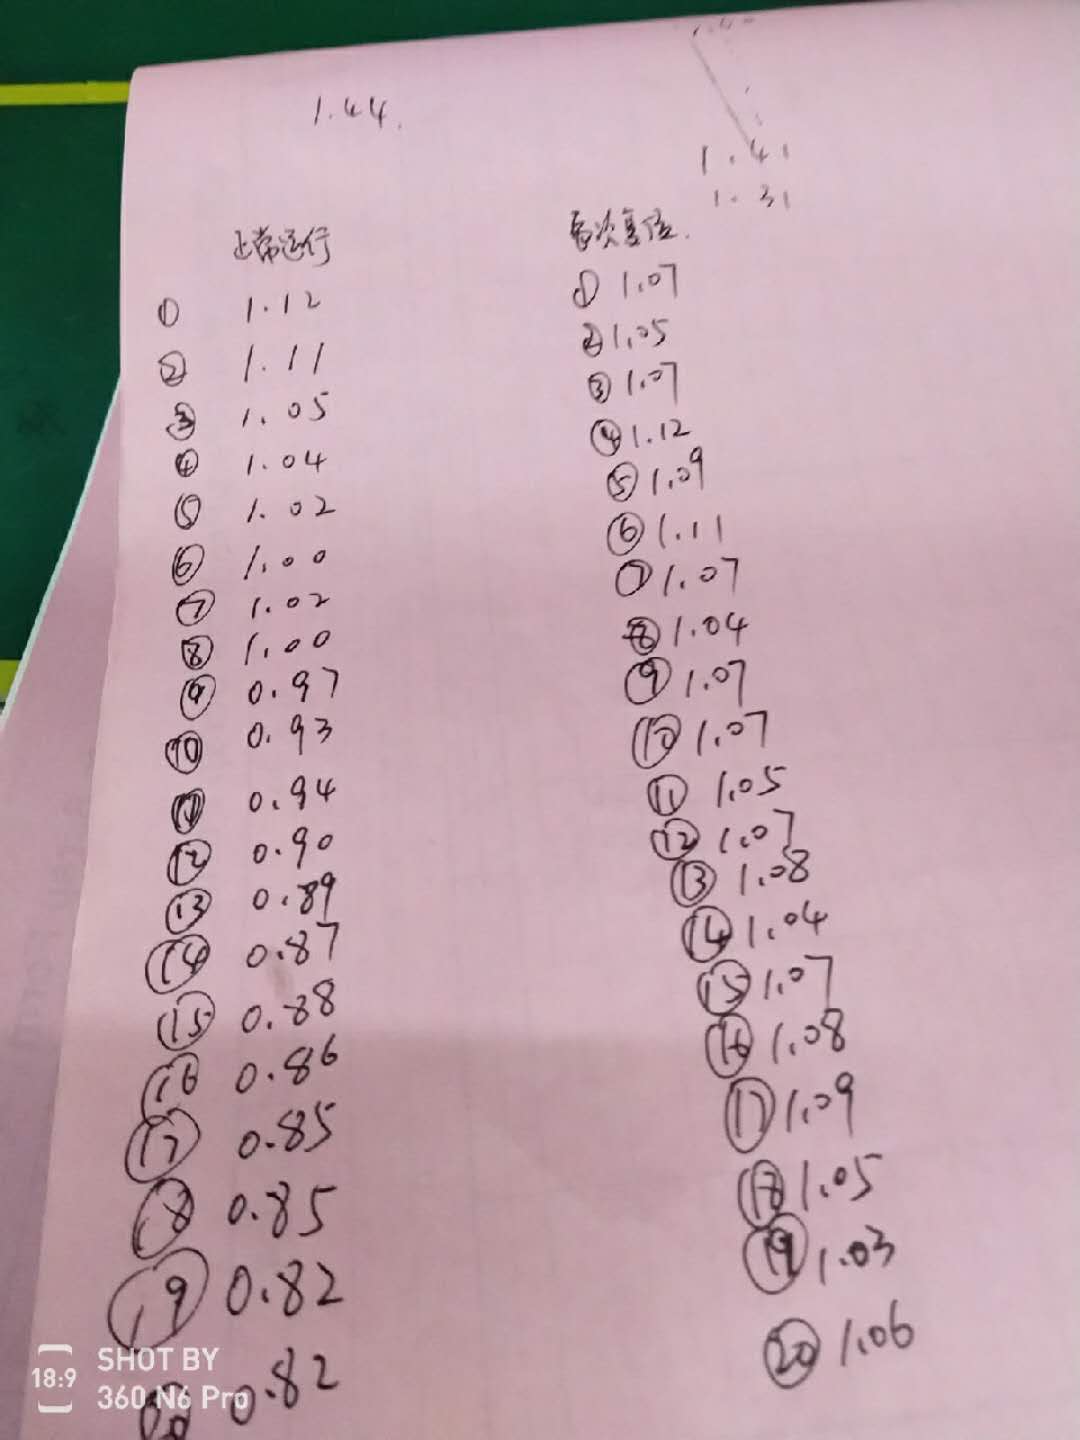 1.44.
1.41
1.31
正常运行
① 1.12
② 1.11
③ 1.05
④ 1.04
⑤ 1.02
⑥ 1.00
⑦ 1.02
⑧ 1.00
⑨ 0.97
⑩ 0.93
⑪ 0.94
⑫ 0.90
⑬ 0.89
⑭ 0.87
⑮ 0.88
⑯ 0.86
⑰ 0.85
⑱ 0.85
⑲ 0.82
⑳ 0.82
每次复位.
① 1.07
② 1.05
③ 1.07
④ 1.12
⑤ 1.09
⑥ 1.11
⑦ 1.07
⑧ 1.04
⑨ 1.07
⑩ 1.07
⑪ 1.05
⑫ 1.07
⑬ 1.08
⑭ 1.04
⑮ 1.07
⑯ 1.08
⑰ 1.09
⑱ 1.05
⑲ 1.03
⑳ 1.06
18:9
SHOT BY
360 N6 Pro